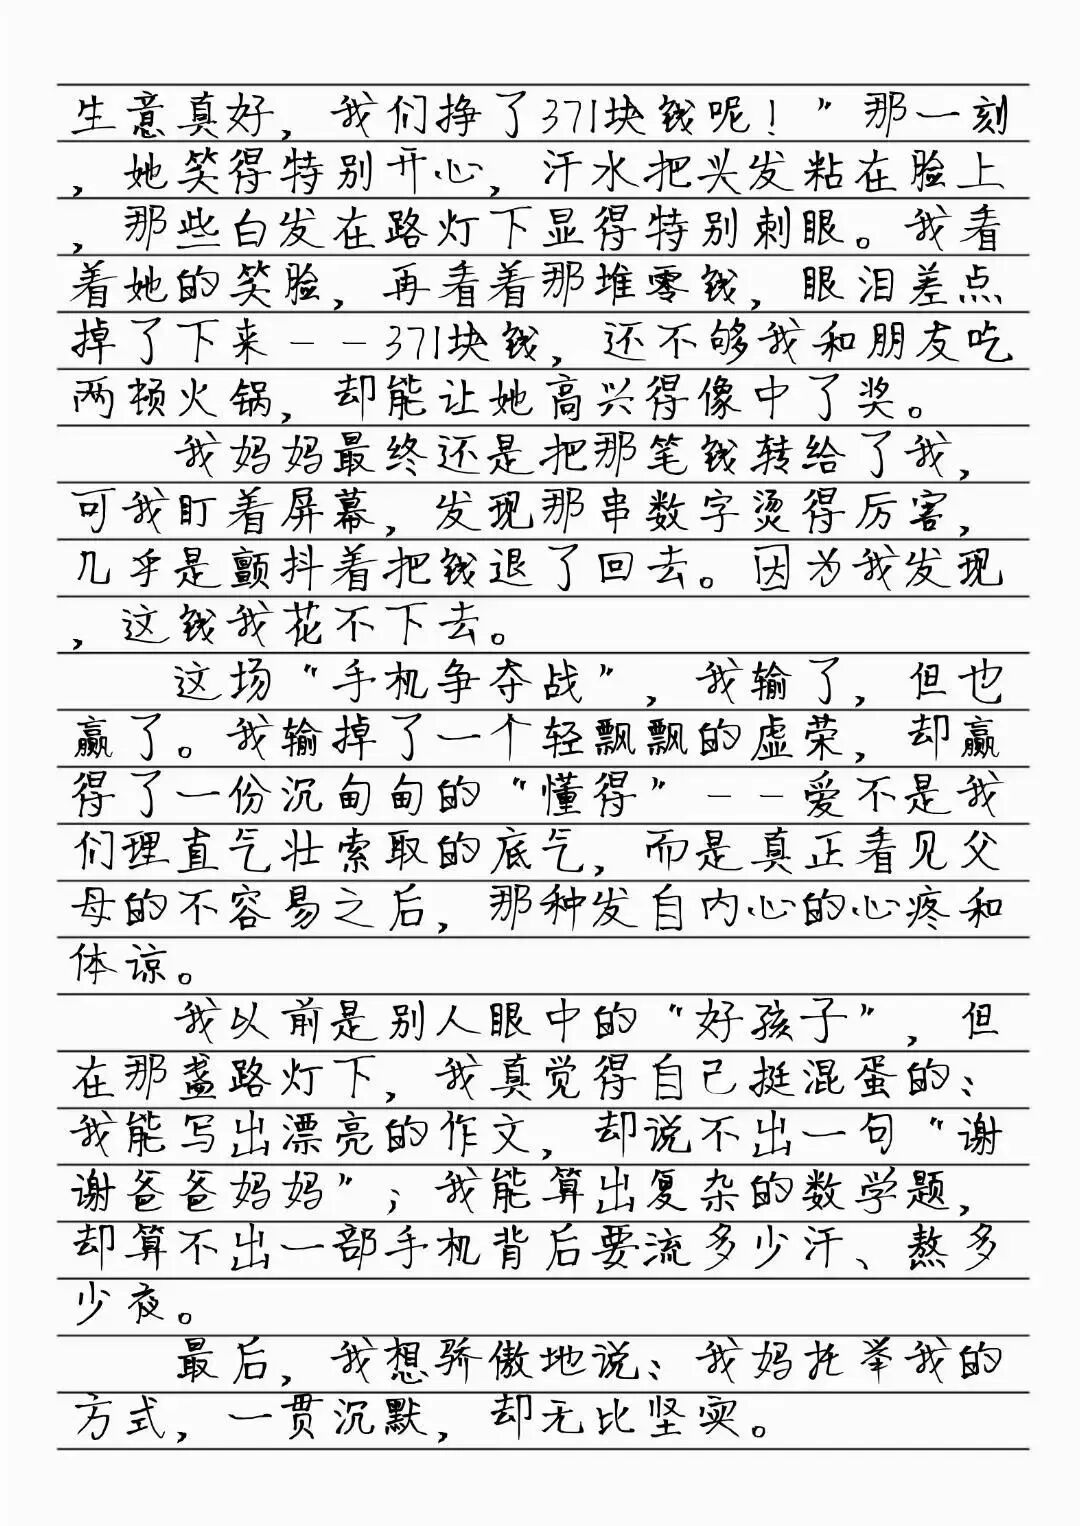 生意真好，我们挣了371块钱呢！”那一刻
，她笑得特别开心，汗水把头发粘在脸上
，那些白发在路灯下显得特别刺眼。我看
着她的笑脸，再看着那堆零钱，眼泪差点
掉了下来--371块钱，还不够我和朋友吃
两顿火锅，却能让她高兴得像中了奖。
我妈妈最终还是把那笔钱转给了我，
可我盯着屏幕，发现那串数字烫得厉害，
几乎是颤抖着把钱退了回去。因为我发现
，这钱我花不下去。
这场“手机争夺战”，我输了，但也
赢了。我输掉了一个轻飘飘的虚荣，却赢
得了一份沉甸甸的“懂得”--爱不是我
们理直气壮索取的底气，而是真正看见父
母的不容易之后，那种发自内心的心疼和
体谅。
我以前是别人眼中的“好孩子”，但
在那盏路灯下，我真觉得自己挺混蛋的：
我能写出漂亮的作文，却说不出一句“谢
谢爸爸妈妈”；我能算出复杂的数学题，
却算不出一部手机背后要流多少汗、熬多
少夜。
最后，我想骄傲地说：我妈托举我的
方式，一贯沉默，却无比坚实。